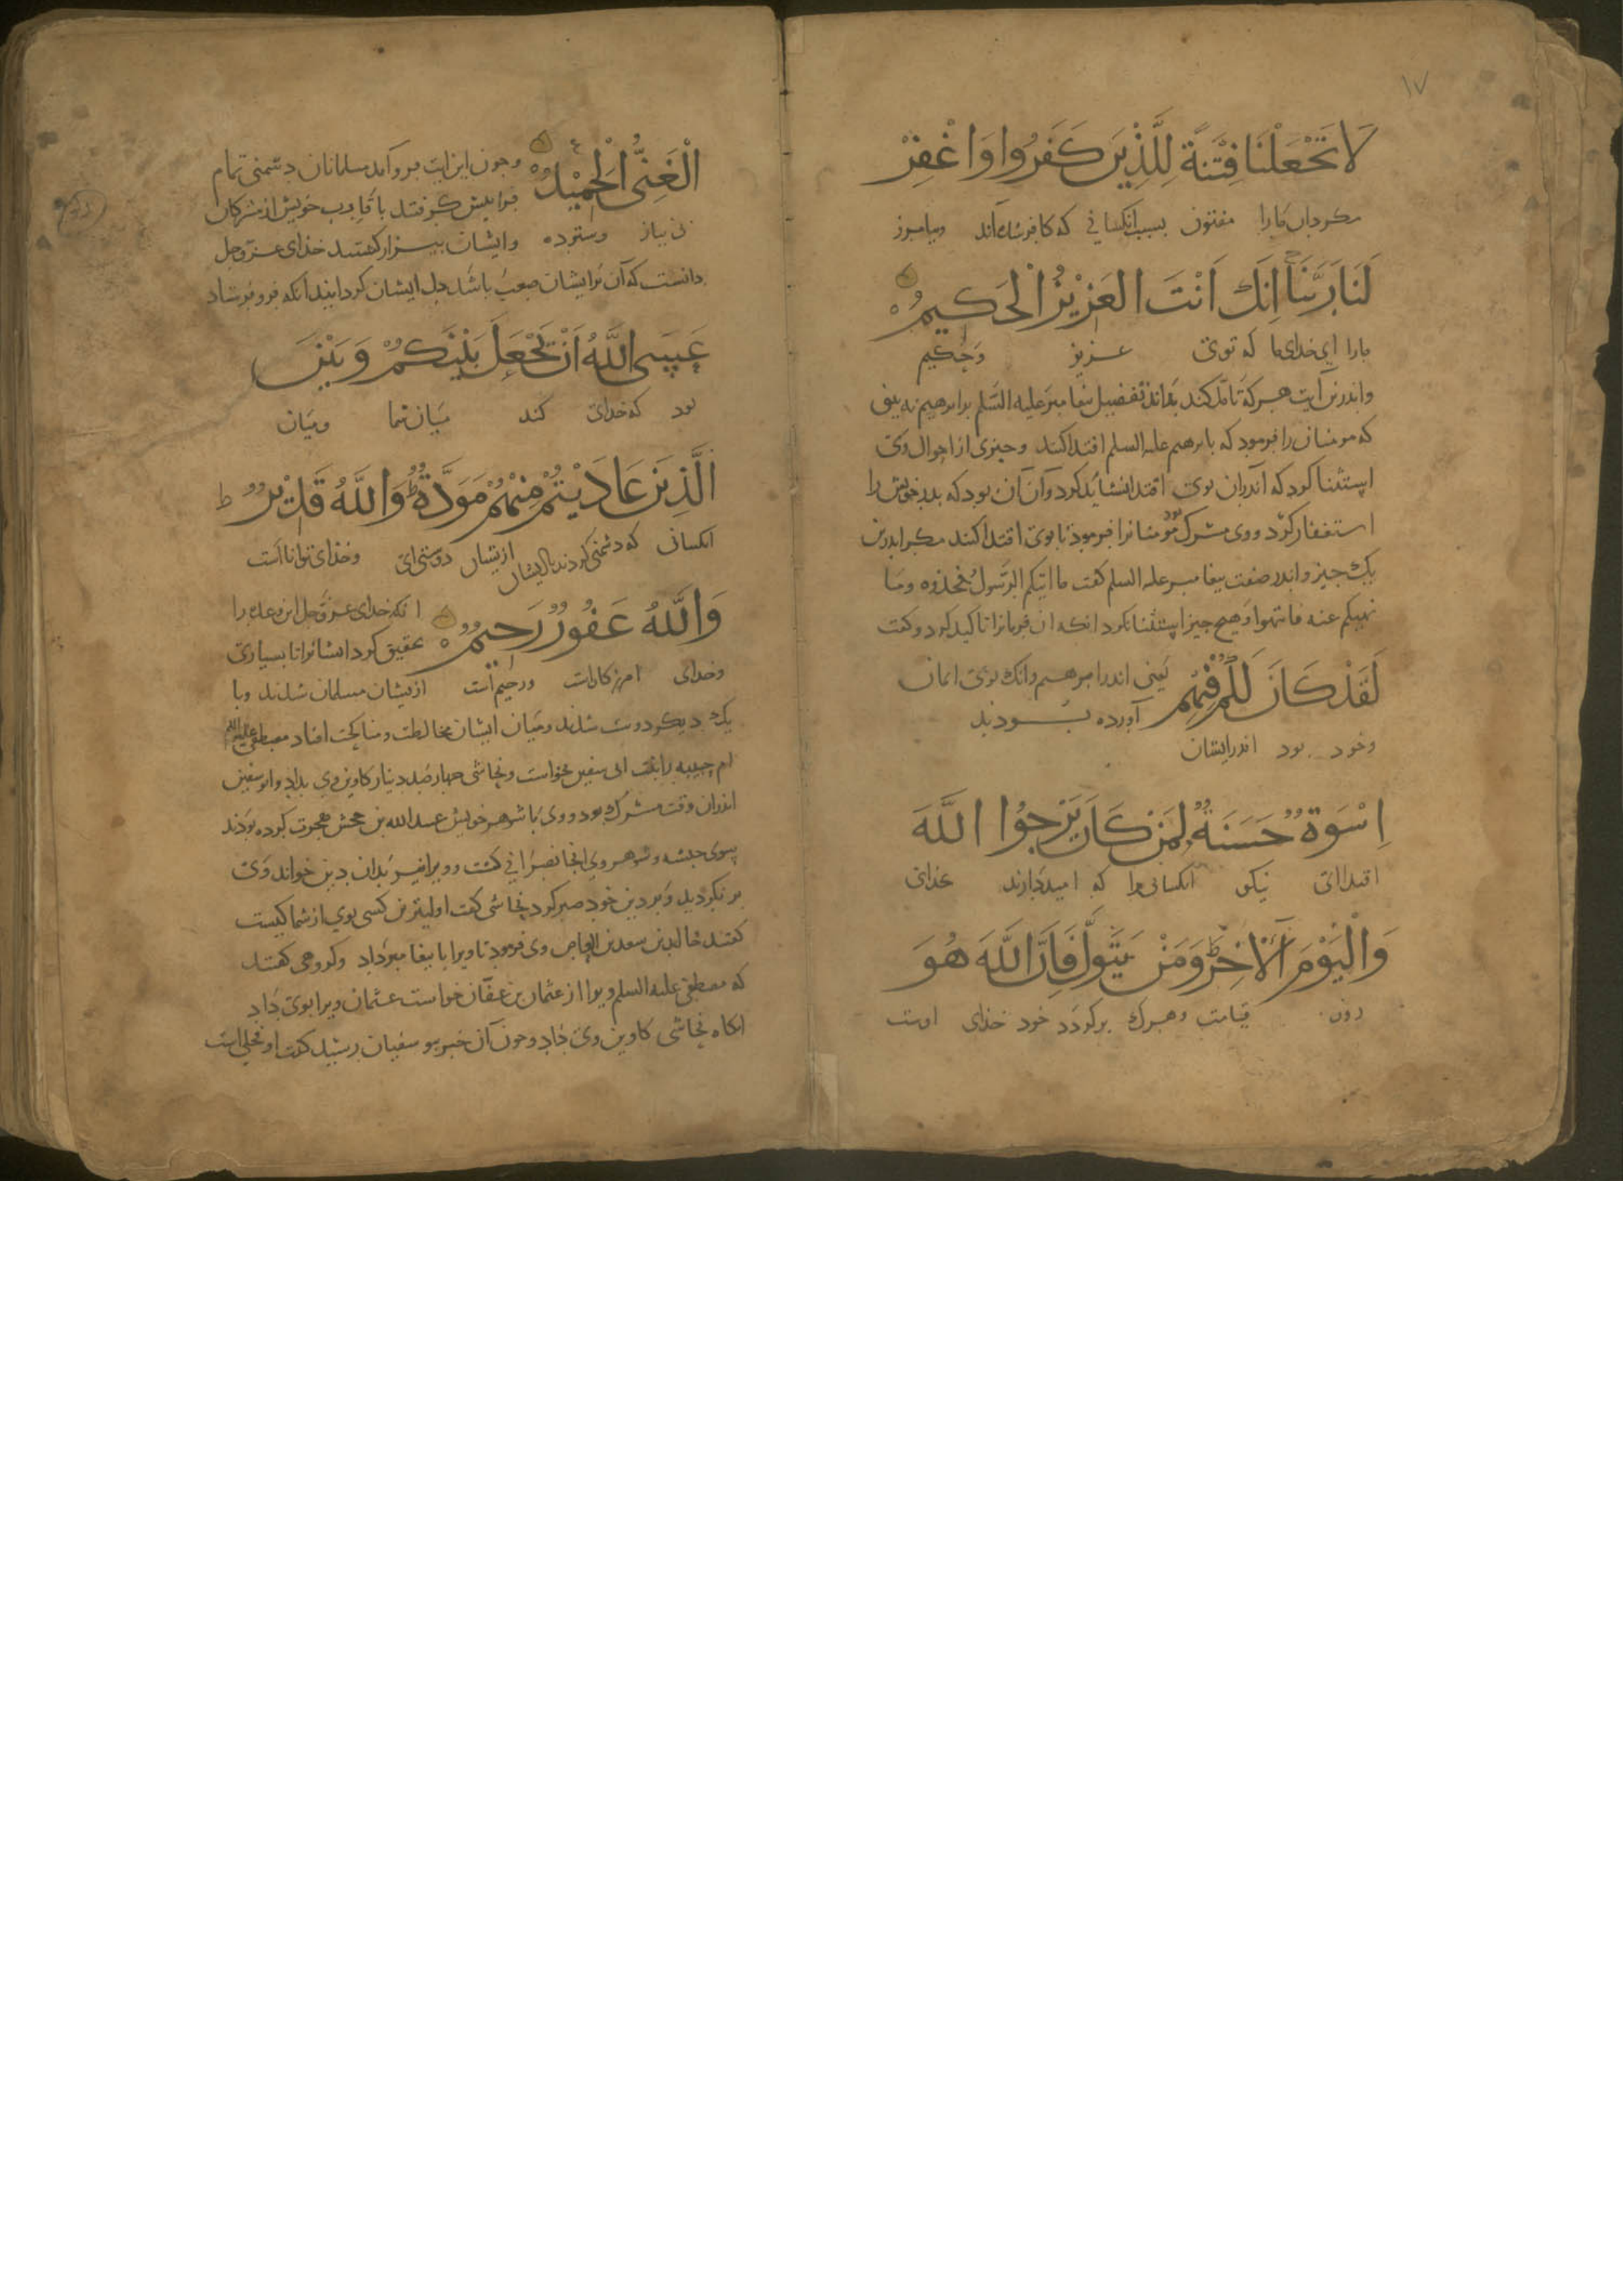 ١٧
لَا تَجْعَلْنَا فِتْنَةً لِلَّذِينَ كَفَرُوا وَاغْفِرْ
مکردان مارا مفتون بسبب انکسانی که کافر شده‌اند وبیامرز
لَنَا رَبَّنَا اِنَّكَ اَنْتَ الْعَزِيْزُ الْحَكِيمُ
مارا ای خدای ما که توی عزیز وحکیم
واندرین آیت هرکه تامل کند بداند تفضیل پیغامبر علیه السلم بر ابرهیم نه بینی
که مومنان را فرمود که بابرهیم علیه السلم اقتدا کنند وچیزی از احوال وی
استثنا کرد که اندران بوی اقتدا نشاید کرد وآن آن بود که پدر خویش را
استغفار کرد ووی مشرک بود مومنانرا فرمود تا بوی اقتدا کنند مکر اندرین
یک چیز واندر صفت پیغامبر علیه السلم کفت ما اتیکم الرسول فخذوه وما
نهیکم عنه فانتهوا وهیچ چیز استثنا نکرد انکه آن فرمانرا تاکید کرد وکفت
لَقَدْ كَانَ لَكُمْ فِيْهِمْ یعنی اندر ابرهیم وانک بوی ایمان
آورده بودند
وخود بود اندر ایشان
اِسْوَةٌ حَسَنَةٌ لِمَنْ كَانَ يَرْجُوا اللَّهَ
اقتدای نیکو انکسانی را که امید دارند بخدای
وَالْيَوْمَ الْآخِرَ وَمَنْ يَتَوَلَّ فَاِنَّ اللَّهَ هُوَ
روز قیامت وهرک برکردد خود خدای اوست
الْغَنِيُّ الْحَمِيْدُ وجون این ایت فرو آمد مسلمانان دشمنی تمام
فرا پیش کرفتند با قارب خویش از مشرکان
بی نیاز وستوده وایشان بیزار کفتند خدای عزوجل
دانست که آن بر ایشان صعب باشد دل ایشان کردانید انکه فرو فرستاد
عَسَى اللَّهُ اَنْ يَجْعَلَ بَيْنَكُمْ وَبَيْنَ
بود که خدای کند میان شما ومیان
الَّذِيْنَ عَادَيْتُمْ مِنْهُمْ مَوَدَّةً وَاللَّهُ قَدِيْرٌ ط
انکسانی که دشمنی کردند باایشان ازیشان دوستی‌ای وخدای تواناست
وَاللَّهُ غَفُورٌ رَحِيمٌ انکه خدای عزوجل این وعده را
تحقیق کرد ایشانرا تا بسیاری
وخدای امرزکارست ورحیم است ازیشان مسلمان شدند وبا
یک دیکر دوست شدند ومیان ایشان مخالطت ومناکحت افتاد مصطفی علیه السلم
ام حبیبه را بنت ابی سفین بخواست ونجاشی چهارصد دینار کاوین وی بداد وابوسفین
اندران وقت مشرک بود ووی با شوهر خویش عبدالله بن جحش هجرت کرده بودند
بسوی حبشه وشوهر وی انجا نصرانی کشت وویرا نیز بدان دین خواند وی
برنکردید وبر دین خود صبر کرد نجاشی کفت اولیترین کسی بوی از شما کیست
کفتند خالد بن سعد بن العاص وی فرمود تا ویرا با پیغامبر داد وکروهی کفتند
که مصطفی علیه السلم ویرا از عثمان بن عفان خواست عثمان ویرا بوی داد
انکاه نجاشی کاوین وی داد وجون آن خبر ببو سفیان رسید کفت او فحلی است